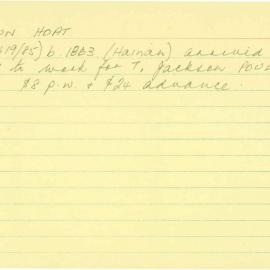 ON HOAT
419/85) b. 1863 (Hainan) arrived
to work for T. Jackson
$8 p.w. & $24 advance.